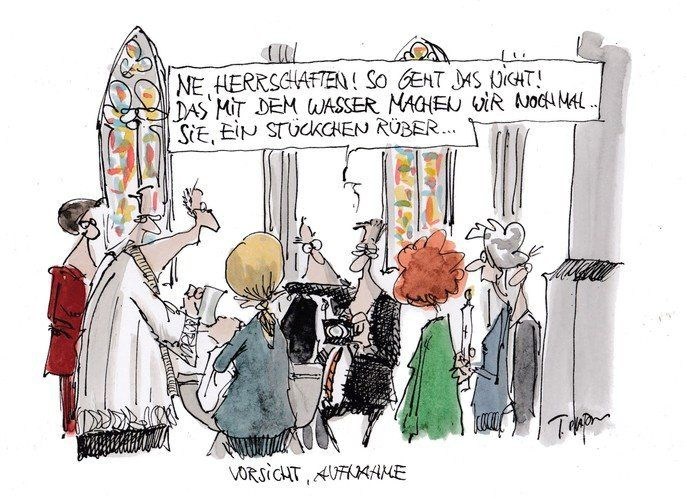 NE, HERRSCHAFTEN! SO GEHT DAS NICHT!
DAS MIT DEM WASSER MACHEN WIR NOCHMAL..
SIE, EIN STÜCKCHEN RÜBER...
VORSICHT, AUFNAHME